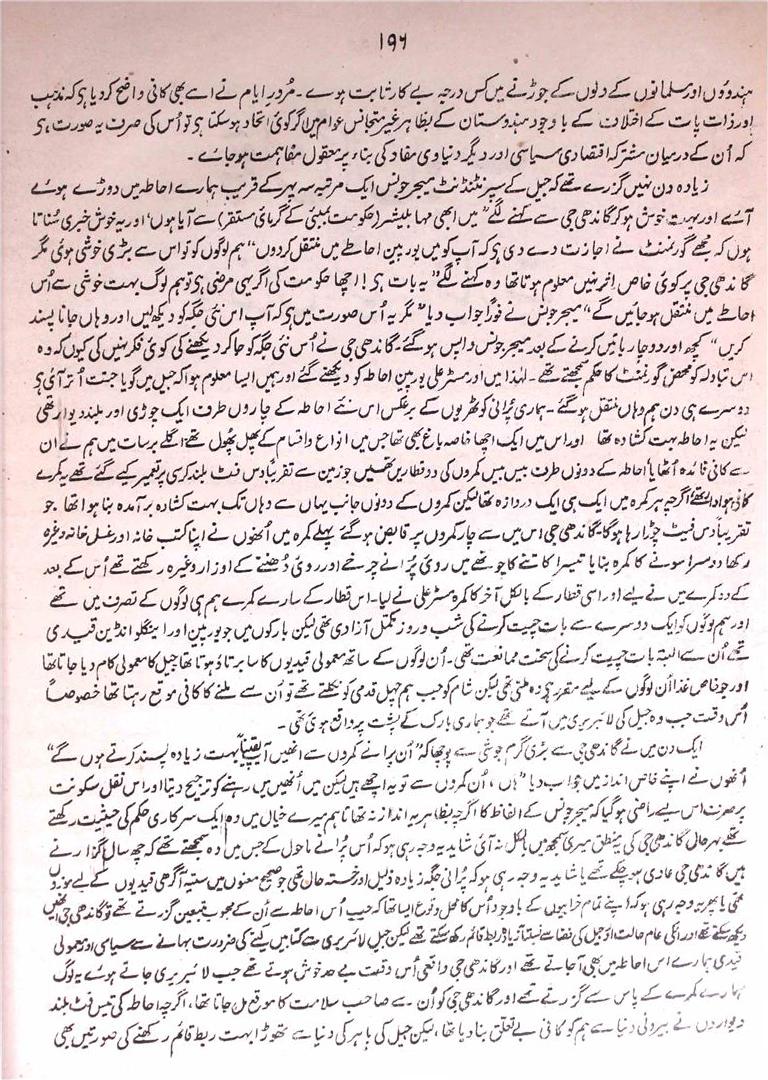 ۱۹۶
ہندوؤں اور مسلمانوں کے دلوں کے جوڑنے میں کس درجہ بے کار ثابت ہوے ۔ مُرورِ ایام نے اسے بھی کافی واضح کردیا ہے کہ مذہب
اور ذات پات کے اختلاف کے باوجود ہندوستان کے بظاہر غیر متجانس عوام میں اگر کوئی اتحاد ہوسکتا ہے تو اُس کی صرف یہ صورت ہے
کہ اُن کے درمیان مشترکہ اقتصادی سیاسی اور دیگر دنیاوی مفاد کی بناء پر معقول مفاہمت ہوجاے ۔
زیادہ دن نہیں گزرے تھے کہ جیل کے سپرنٹنڈنٹ میجر جونس ایک مرتبہ سہ پہر کے قریب ہمارے احاطہ میں دوڑے ہوے
آے اور بہت خوش ہوکر گاندھی جی سے کہنے لگے "میں ابھی مہابلیشر (حکومت بمبئی کے گرمائی مستقر) سے آیا ہوں، اور یہ خوش خبری سُناتا
ہوں کہ مجھے گورنمنٹ نے اجازت دے دی ہے کہ آپ کو میں یورپین احاطے میں منتقل کردوں" ہم لوگوں کو تو اس سے بڑی خوشی ہوئی مگر
گاندھی جی پر کوئی خاص اثر نہیں معلوم ہوتا تھا وہ کہنے لگے "یہ بات ہے! اچھا حکومت کی اگر یہی مرضی ہے تو ہم لوگ بہت خوشی سے اُس
احاطے میں منتقل ہوجائیں گے" میجر جونس نے فوراً جواب دیا "مگر یہ اُس صورت میں ہے کہ آپ اس نئی جگہ کو دیکھ لیں اور وہاں جانا پسند
کریں" کچھ اور دوچار باتیں کرنے کے بعد میجر جونس واپس ہوگئے ۔ گاندھی جی نے اُس نئی جگہ کو جاکر دیکھنے کی کوئی فکر نہیں کی کیوں کہ وہ
اس تبادلہ کو محض گورنمنٹ کا حکم سمجھتے تھے ۔ لہٰذا میں اور مسٹر علی یورپین احاطہ کو دیکھنے گئے اور ہمیں ایسا معلوم ہوا کہ جیل میں گویا جنت اُتر آئی ہے
دوسرے ہی دن ہم وہاں منتقل ہوگئے ۔ ہماری پُرانی کوٹھریوں کے برعکس اس نئے احاطہ کے چاروں طرف ایک چوڑی اور بلند دیوار تھی
لیکن یہ احاطہ بہت کشادہ تھا اور اس میں ایک اچھا خاصہ باغ بھی تھا جس میں انواع و اقسام کے پھل پھول تھے، اگلے برسات میں ہم نے ان
سے کافی فائدہ اُٹھایا، احاطہ کے دونوں طرف بیس بیس کمروں کی دو قطاریں تھیں جو زمین سے تقریباً دس فٹ بلند کرسی پر تعمیر کیے گئے تھے یہ کمرے
ہوادار تھے اگرچہ ہر کمرہ میں ایک ہی ایک دروازہ تھا لیکن کمروں کے دونوں جانب یہاں سے وہاں تک بہت کشادہ برآمدہ بنا ہوا تھا جو
تقریباً دس فیٹ چوڑا رہا ہوگا ۔ گاندھی جی اس میں سے چار کمروں پر قابض ہوگئے پہلے کمرہ میں اُنھوں نے اپنا کتب خانہ اور غسل خانہ وغیرہ
رکھا دوسرا سونے کا کمرہ بنایا تیسرا کاتنے کا چوتھے میں روئی پُرانے چرخے اور روئی دُھننے کے اوزار وغیرہ رکھتے تھے اُس کے بعد
کے دو کمرے میں نے لیے اور اسی قطار کے بالکل آخر کا کمرہ مسٹر علی نے لیا ۔ اس قطار کے سارے کمرے ہم ہی لوگوں کے تصرف میں تھے
اور ہم لوگوں کو ایک دوسرے سے بات چیت کرنے کی شب و روز مکمل آزادی تھی لیکن بارکوں میں جو یورپین اور اینگلو انڈین قیدی
تھے اُن سے البتہ بات چیت کرنے کی سخت ممانعت تھی ۔ اُن لوگوں کے ساتھ معمولی قیدیوں کا سا برتاؤ ہوتا تھا جیل کا معمولی کام دیا جاتا تھا
اور جو خاص غذا اُن لوگوں کے لیے مقرر ہے وہ ملتی تھی لیکن شام کو جب ہم چہل قدمی کو نکلتے تھے تو اُن سے ملنے کا کافی موقع رہتا تھا خصوصاً
اُس وقت جب وہ جیل کی لائبریری میں آتے تھے جو ہماری بارک کے پشت پر واقع ہوئی تھی ۔
ایک دن میں نے گاندھی جی سے بڑی گرم جوشی سے پوچھا کہ "اُن پرانے کمروں سے انھیں آپ یقیناً بہت زیادہ پسند کرتے ہوں گے"
اُنھوں نے اپنے خاص انداز میں جواب دیا "ہاں، اُن کمروں سے تو یہ اچھے ہیں لیکن میں اُنھیں میں رہنے کو ترجیح دیتا اور اس نقل سکونت
پر صرف اس لیے راضی ہوگیا کہ میجر جونس کے الفاظ کا اگرچہ بظاہر یہ انداز نہ تھا تاہم میرے خیال میں وہ ایک سرکاری حکم کی حیثیت رکھتے
تھے بہرحال گاندھی جی کی یہ منطق میری سمجھ میں بالکل نہ آئی شاید یہ وجہ رہی ہو کہ اُس پُرانے ماحول کے جس میں وہ سمجھتے تھے کہ چھ سال گزارنے
ہیں گاندھی جی عادی ہوچکے تھے یا شاید یہ وجہ رہی ہو کہ پُرانی جگہ زیادہ ذلیل اور خستہ حال تھی جو صحیح معنوں میں ستیہ آگرہی قیدیوں کے لیے موزوں
تھی یا پھر یہ وجہ رہی ہو کہ اپنے تمام خرابیوں کے باوجود اُس کا محل وقوع ایسا تھا کہ جب اُس احاطہ سے اُن کے محبوب متبعین گزرتے تھے تو گاندھی جی اُنھیں
دیکھ سکتے تھے اور اُنکی عام حالت اور جیل کی فضا سے نسبتاً زیادہ ربط قائم رکھ سکتے تھے لیکن جیل لائبریری سے کتابیں لینے کی ضرورت بہانے سے سیاسی اور معمولی
قیدی ہمارے اس احاطہ میں بھی آجاتے تھے اور گاندھی جی واقعی اُس وقت بے حد خوش ہوتے تھے جب لائبریری جاتے ہوے یہ لوگ
ہمارے کمرے کے پاس سے گزرتے تھے اور گاندھی جی کو اُن سے صاحب سلامت کا موقع مل جاتا تھا، اگرچہ احاطہ کی تیس فٹ بلند
دیواروں نے بیرونی دنیا سے ہم کو کافی بے تعلق بنا دیا تھا، لیکن جیل کی باہر کی دنیا سے تھوڑا بہت ربط قائم رکھنے کی صورتیں بھی